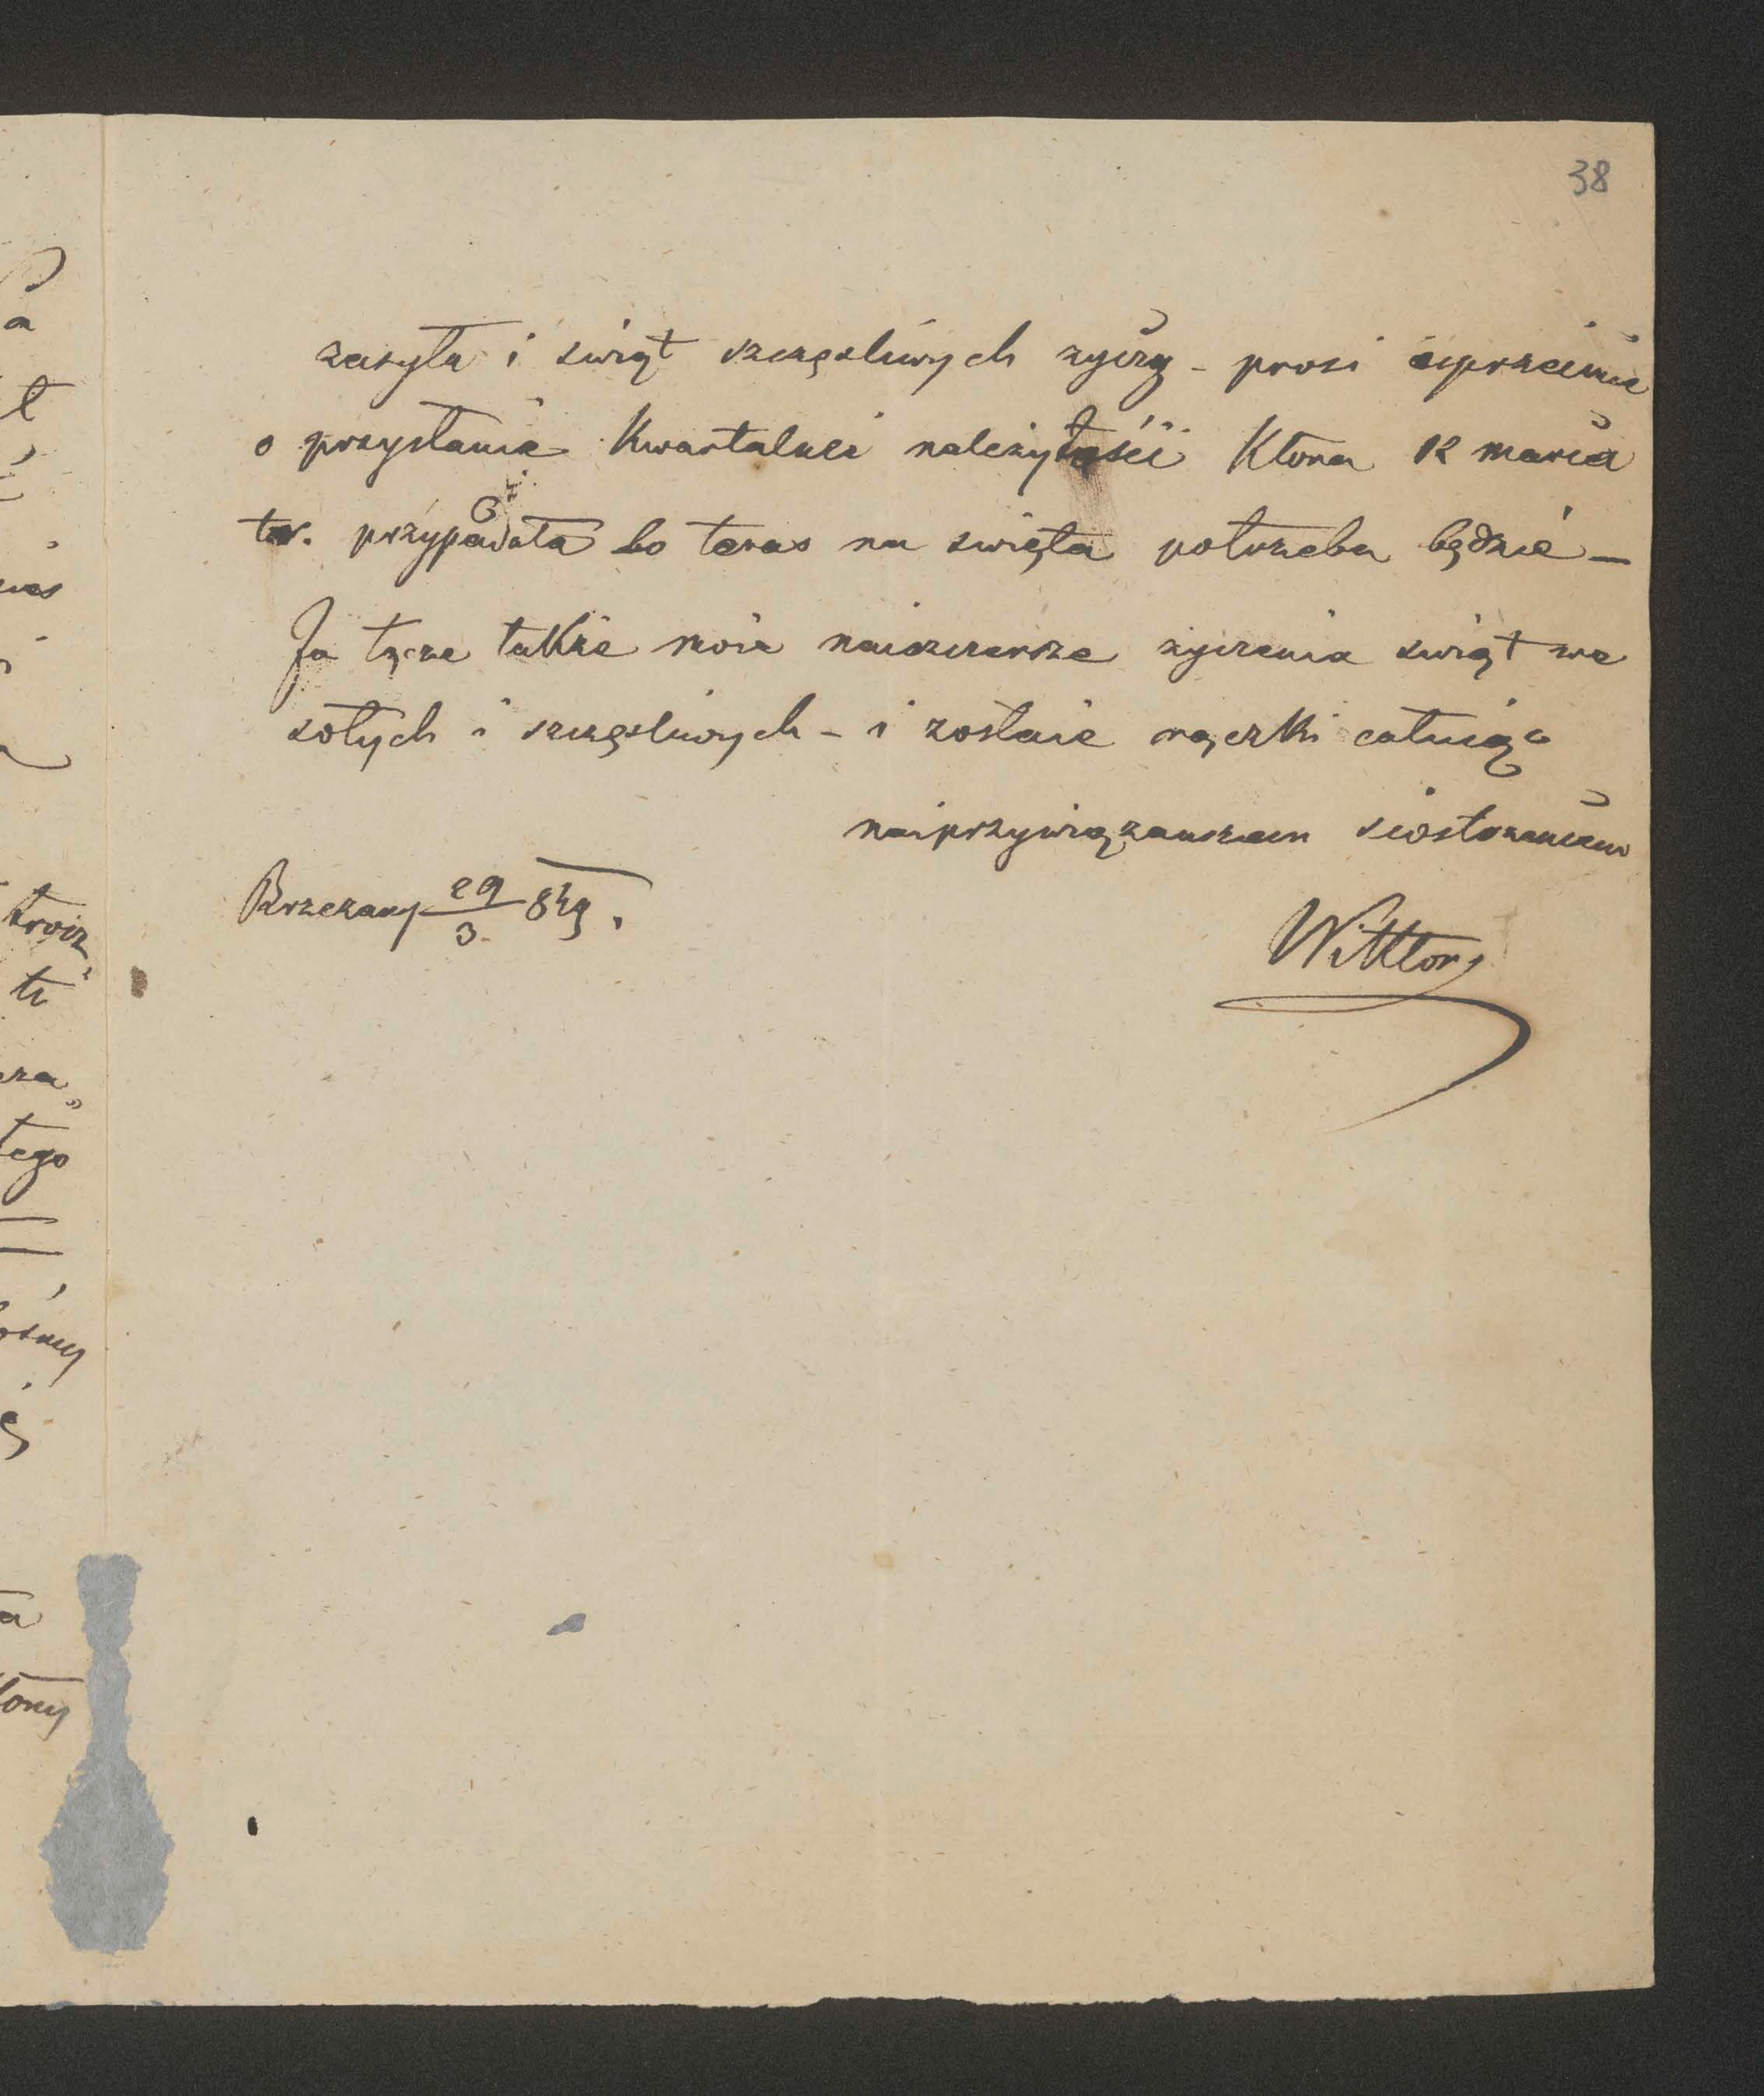 38
zasyła i swiąt szczęsliwych zyczy - prosi uprzeimie
o przysłanie Kwartalnei należytości Ktora 12 marca
t.r. przypadała bo teras na swięta potrzeba będzie -
Ja łącze takze moie naiszczersze zyczenia swiąt we
sołych i szczęsliwych - i zostaie rączki całuiąc
naiprzywiązanszem siostrzencem
Brzezany 29/3 849.
Wiktor
troiz
te
tego